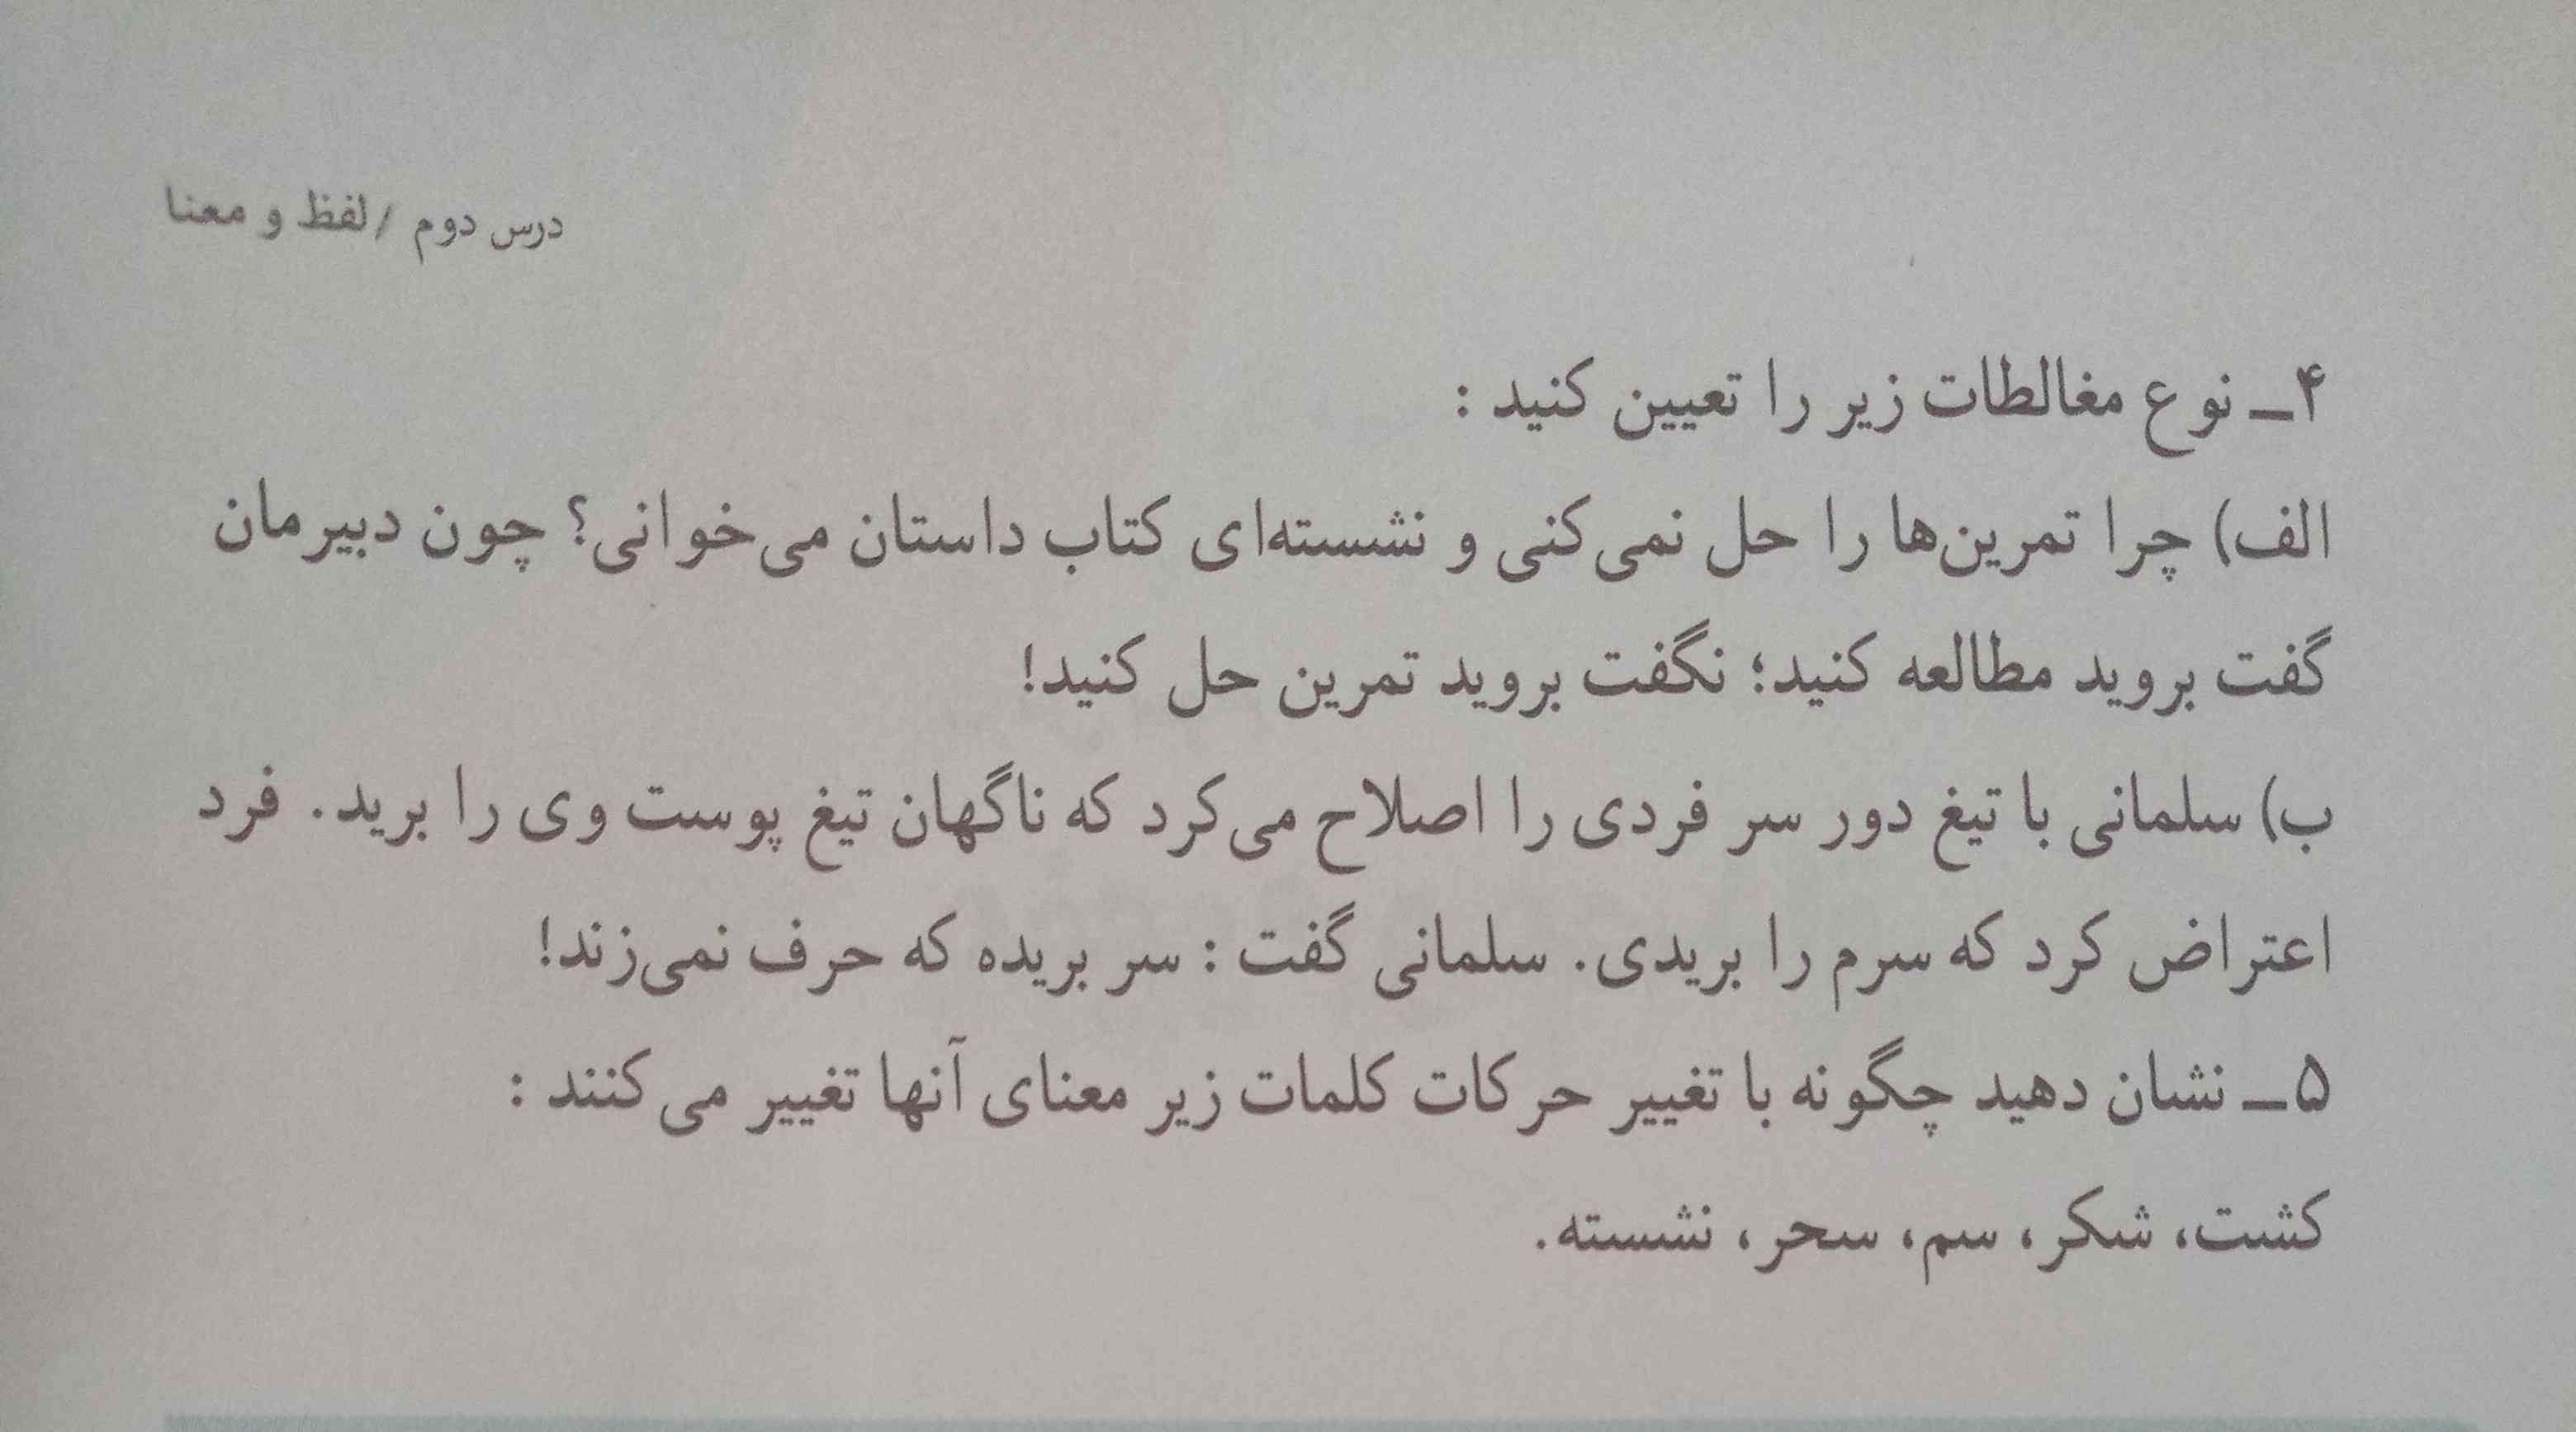 درس دوم / لفظ و معنا
۴ــ نوع مغالطات زیر را تعیین کنید :
الف) چرا تمرین‌ها را حل نمی‌کنی و نشسته‌ای کتاب داستان می‌خوانی؟ چون دبیرمان
گفت بروید مطالعه کنید؛ نگفت بروید تمرین حل کنید!
ب) سلمانی با تیغ دور سر فردی را اصلاح می‌کرد که ناگهان تیغ پوست وی را برید. فرد
اعتراض کرد که سرم را بریدی. سلمانی گفت : سر بریده که حرف نمی‌زند!
۵ــ نشان دهید چگونه با تغییر حرکات کلمات زیر معنای آنها تغییر می‌کنند :
کشت، شکر، سم، سحر، نشسته.